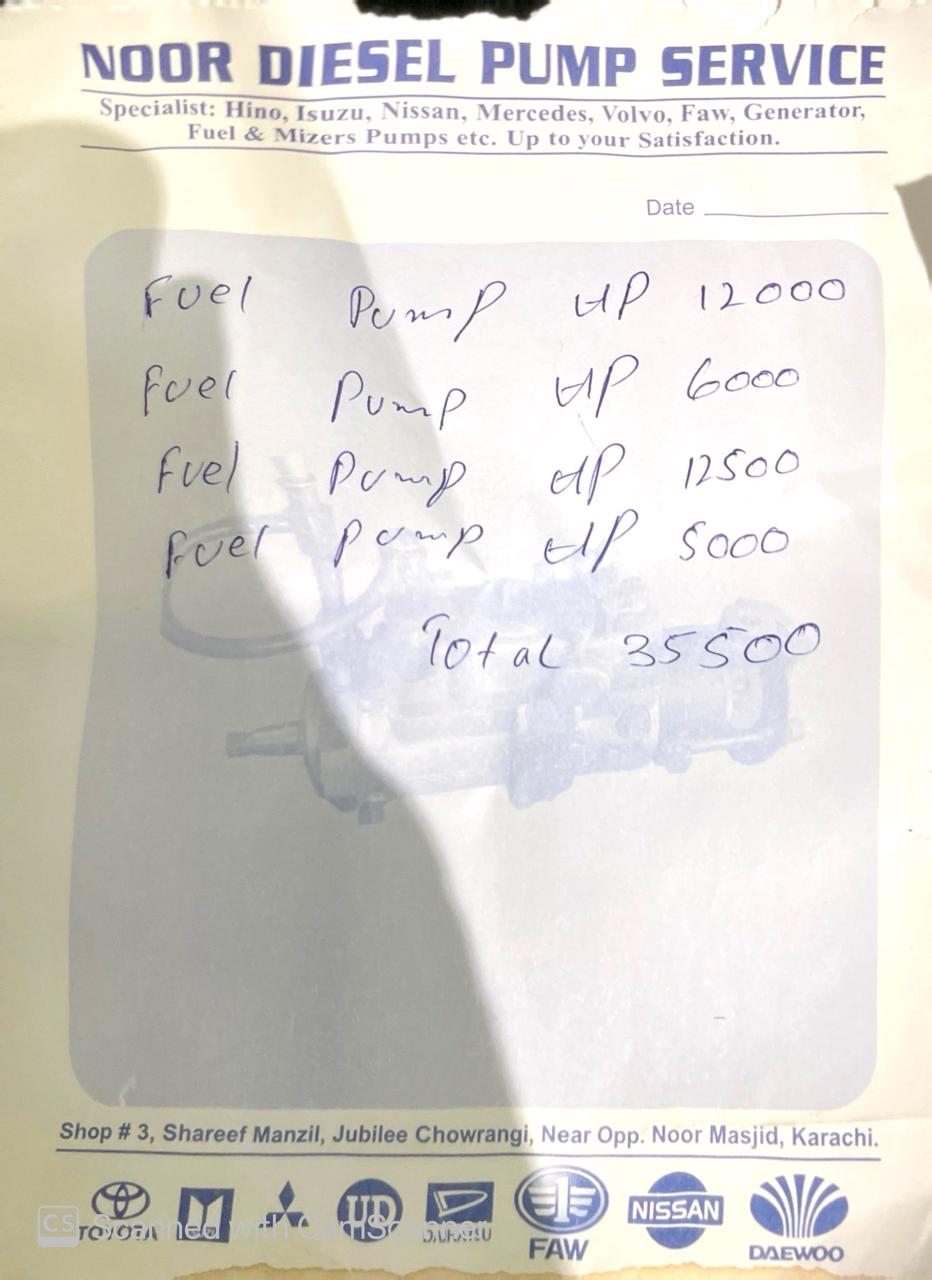 NOOR DIESEL PUMP SERVICE
Specialist: Hino, Isuzu, Nissan, Mercedes, Volvo, Faw, Generator,
Fuel & Mizers Pumps etc. Up to your Satisfaction.
Date
Fuel Pump HP 12000
Fuel Pump HP 6000
Fuel Pump HP 12500
Fuel Pump HP 5000
Total 35500
Shop # 3, Shareef Manzil, Jubilee Chowrangi, Near Opp. Noor Masjid, Karachi.
TOYOTA UD DAIHATSU FAW NISSAN DAEWOO
CS Scanned with CamScanner